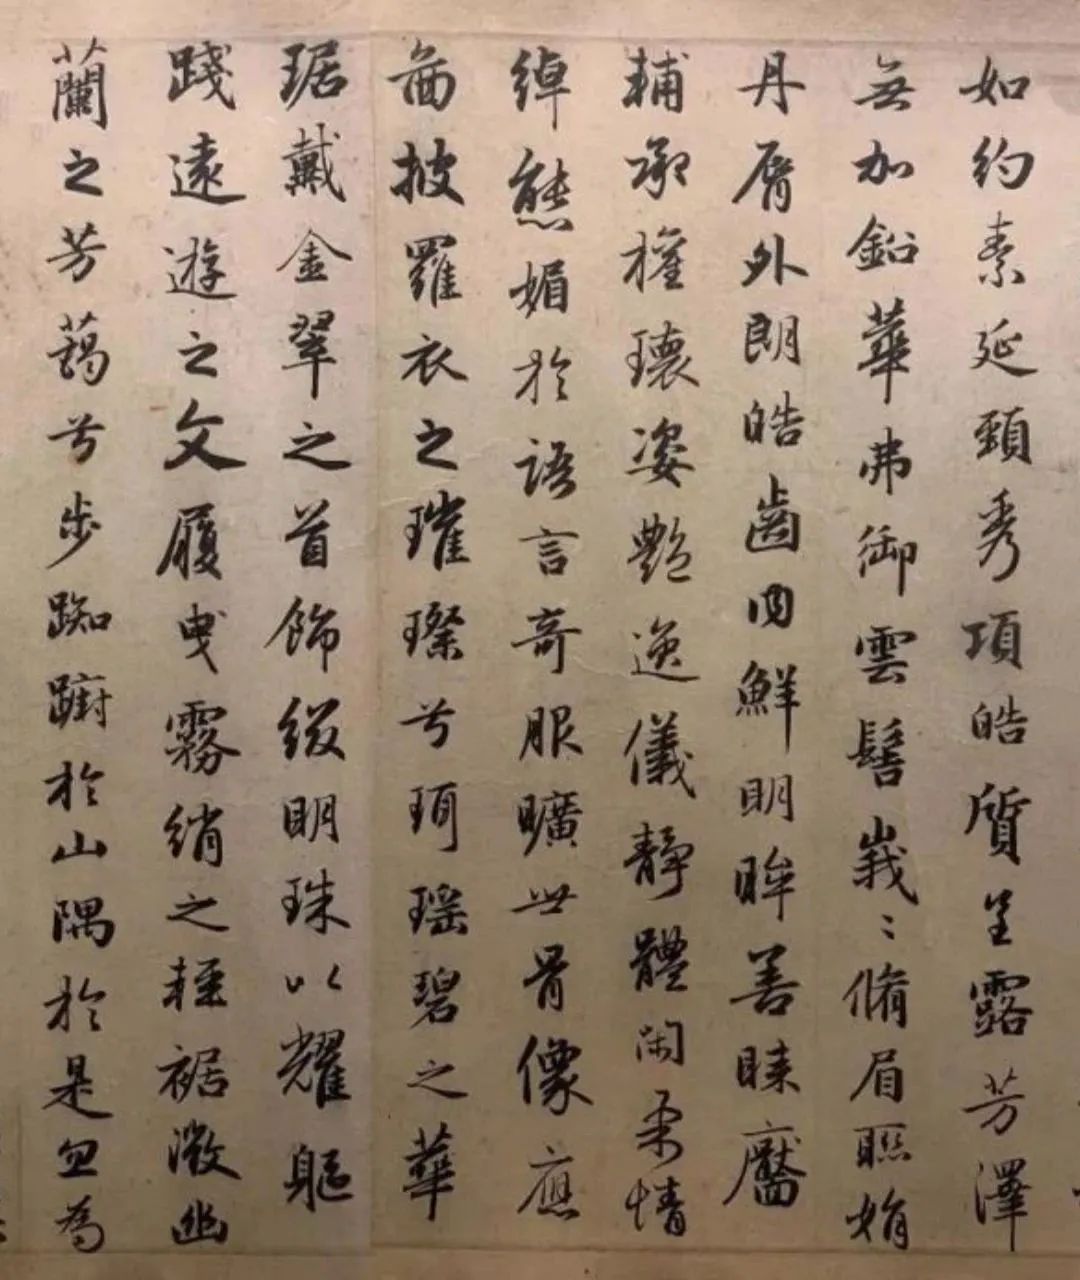 如約素延頸秀項皓質呈露芳澤
無加鉛華弗御雲髻峩〻脩眉聯娟
丹脣外朗皓齒内鮮明眸善睞靨
輔承權瓌姿艷逸儀靜體閑柔情
綽態媚於語言奇服曠世骨像應
啚披羅衣之璀璨兮珥瑶碧之華
琚戴金翠之首飾綴明珠以耀軀
踐遠遊之文履曳霧綃之輕裾微幽
蘭之芳藹兮步踟躕於山隅於是忽焉